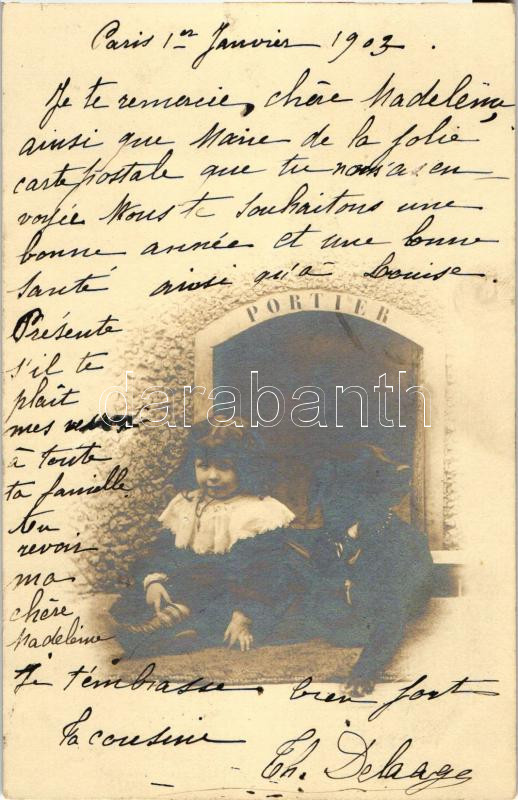 Paris 1er Janvier 1903.
Je te remercie, chère Madeleine,
ainsi que Marie de la jolie
carte postale que tu nous as en-
voyée Nous te souhaitons une
bonne année et une bonne
santé ainsi qu'à Louise.
PORTIER
Présente
s'il te
plait
mes
à toute
ta famille
Au
revoir
ma
chère
Madeleine
Je t'embrasse bien fort
Ta cousine
Th. Delaage
darabanth